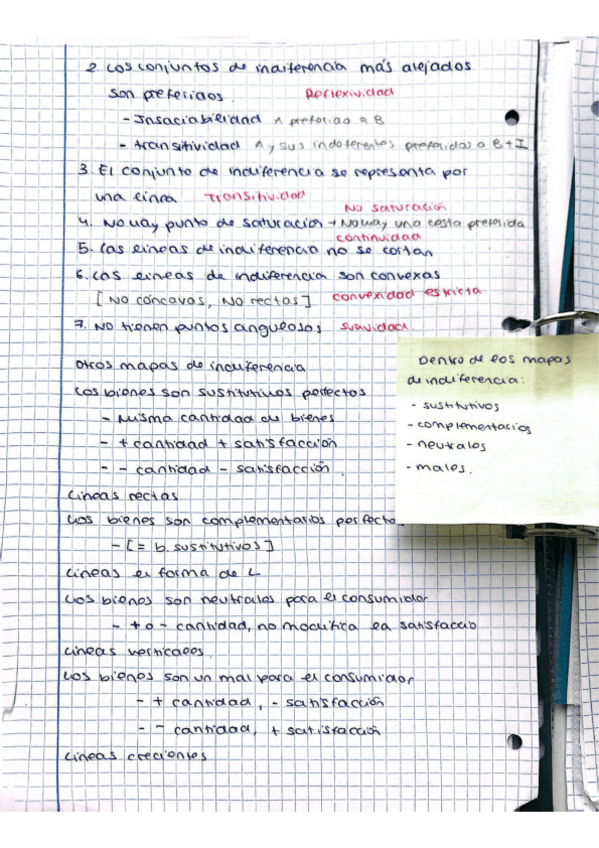 2. Los conjuntos de indiferencia más alejados
son preferidos. Reflexividad
- Insaciabilidad A preferido a B
- transitividad A y sus indiferentes preferidos a B + I
3. El conjunto de indiferencia se representa por
una línea Transitividad
No saturación
4. No hay punto de saturación → No hay una cesta preferida
continuidad
5. Las líneas de indiferencia no se cortan
6. Las líneas de indiferencia son convexas
[No cóncavas, No rectas] convexidad estricta
7. No tienen puntos angulosos suavidad
Otros mapas de indiferencia
Los bienes son sustitutivos perfectos
- Misma cantidad de bienes
- + cantidad + satisfacción
- - cantidad - satisfacción.
Líneas rectas
Los bienes son complementarios perfecto
- [= b. sustitutivos]
Líneas en forma de L
Los bienes son neutrales para el consumidor
- + o - cantidad, no modifica la satisfacció
Líneas verticales.
Los bienes son un mal para el consumidor
- + cantidad, - satisfacción
- - cantidad, + satisfacción
Líneas crecientes
Dentro de los mapas
de indiferencia:
- sustitutivos
- complementarios
- neutrales
- males.